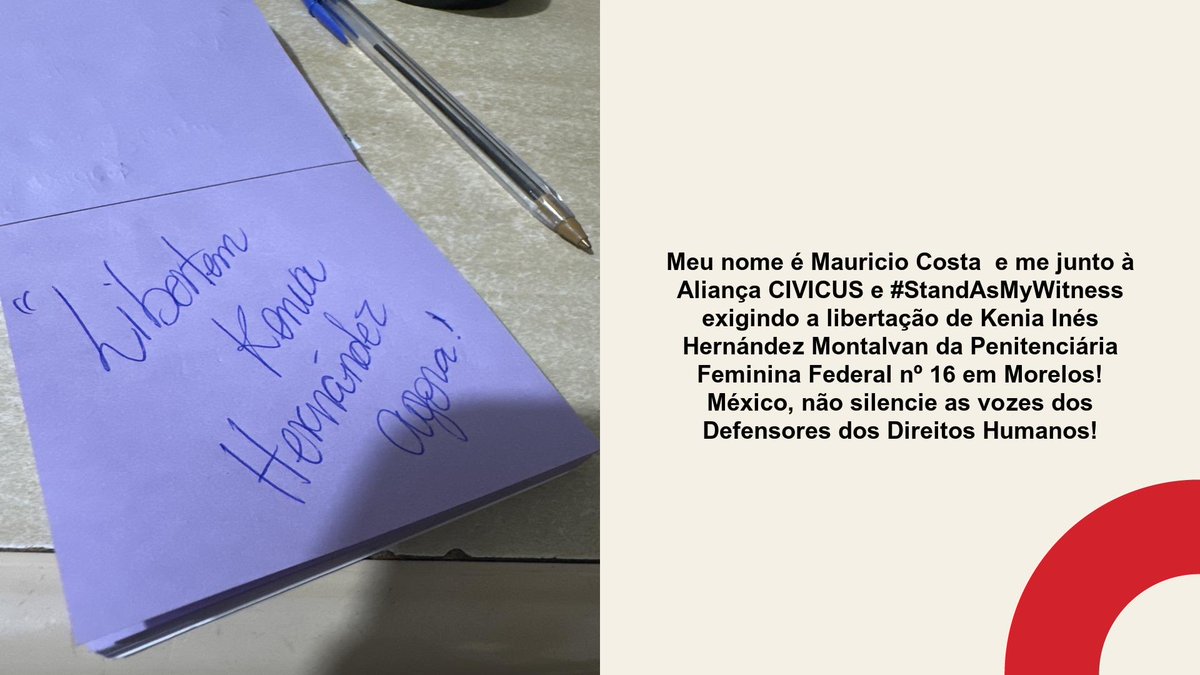 " Libertem
Kenia
Hernández
agora!
Meu nome é Mauricio Costa e me junto à
Aliança CIVICUS e #StandAsMyWitness
exigindo a libertação de Kenia Inés
Hernández Montalvan da Penitenciária
Feminina Federal nº 16 em Morelos!
México, não silencie as vozes dos
Defensores dos Direitos Humanos!